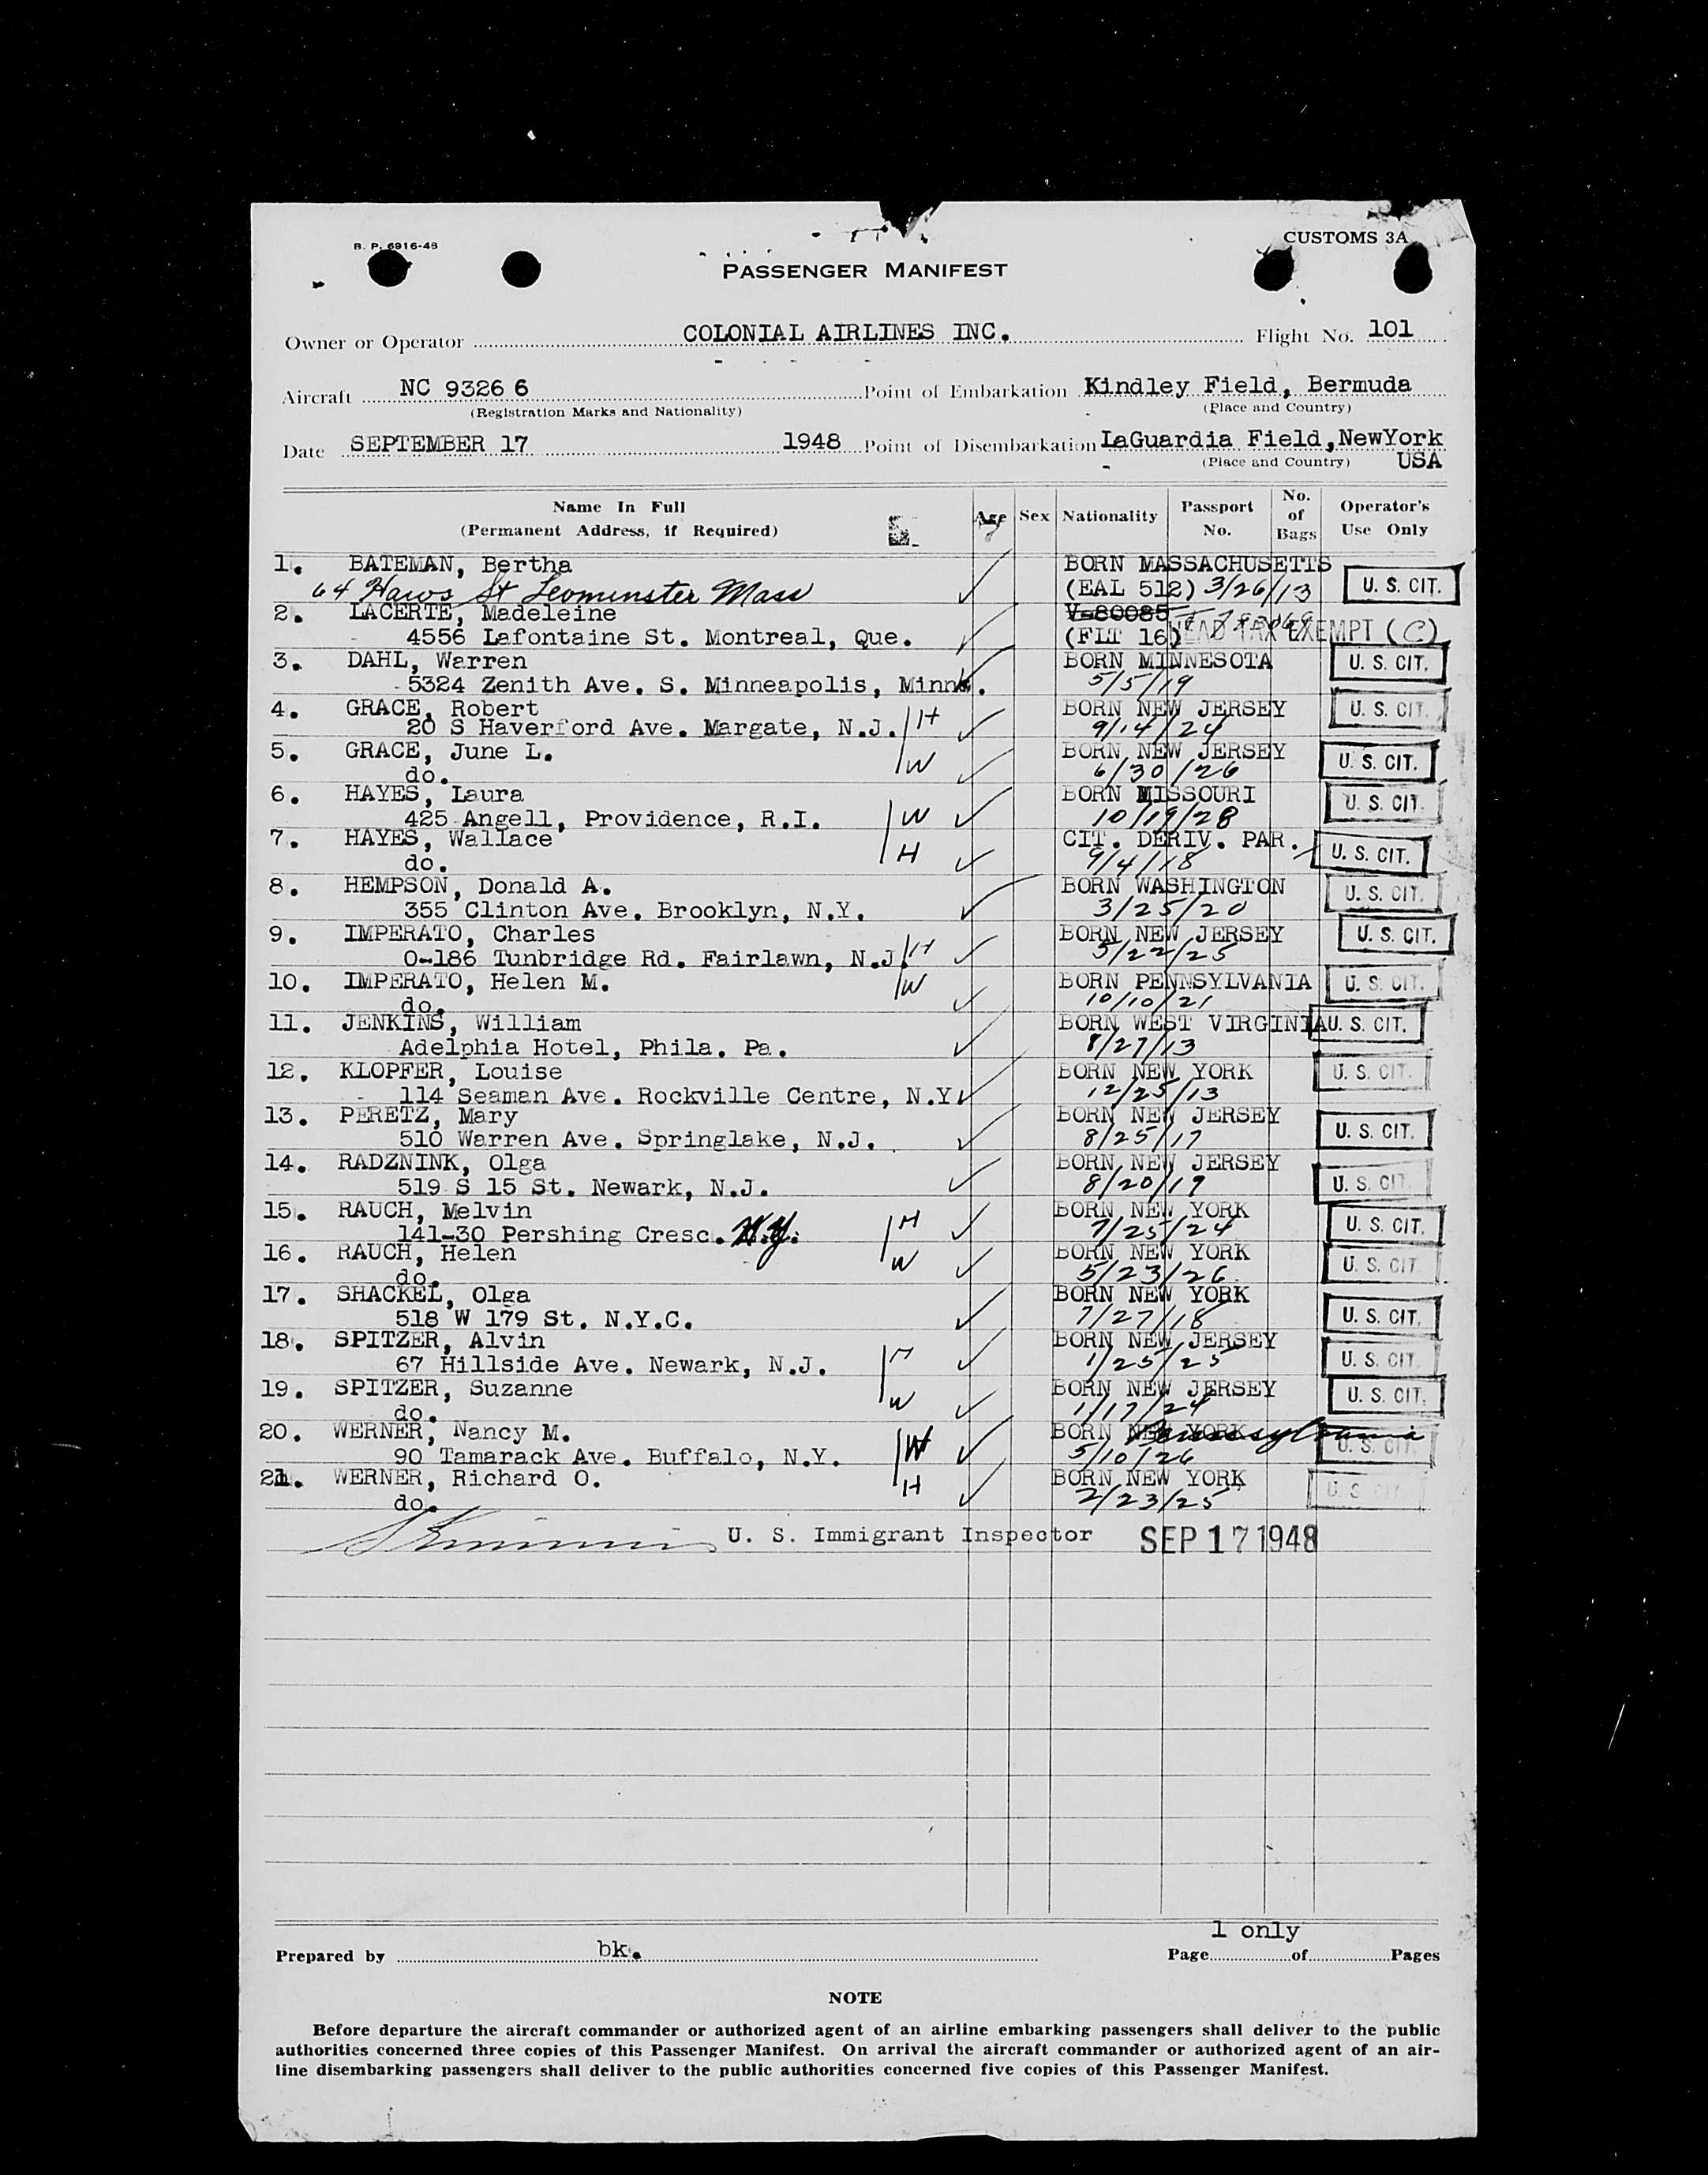 B. P. 6916-48
CUSTOMS 3A
PASSENGER MANIFEST
Owner or Operator COLONIAL AIRLINES INC. Flight No. 101
Aircraft NC 93266 Point of Embarkation Kindley Field, Bermuda
(Registration Marks and Nationality) (Place and Country)
Date SEPTEMBER 17 1948 Point of Disembarkation LaGuardia Field, NewYork
(Place and Country) USA
Name In Full (Permanent Address, if Required) Age Sex Nationality Passport No. No. of Bags Operator's Use Only
1. BATEMAN, Bertha BORN MASSACHUSETTS
64 Haws St Leominster Mass (EAL 512) 3/26/13 U. S. CIT.
2. LACERTE, Madeleine V-80085
4556 Lafontaine St. Montreal, Que. (FLT 16) HEAD TAX EXEMPT (C)
3. DAHL, Warren BORN MINNESOTA U. S. CIT.
5324 Zenith Ave. S. Minneapolis, Minn. 5/5/19
4. GRACE, Robert BORN NEW JERSEY U. S. CIT.
20 S Haverford Ave. Margate, N.J. H 9/14/24
5. GRACE, June L. W BORN NEW JERSEY U. S. CIT.
do. 6/30/26
6. HAYES, Laura BORN MISSOURI U. S. CIT.
425 Angell, Providence, R.I. W 10/19/28
7. HAYES, Wallace H CIT. DERIV. PAR. U. S. CIT.
do. 9/4/18
8. HEMPSON, Donald A. BORN WASHINGTON U. S. CIT.
355 Clinton Ave. Brooklyn, N.Y. 3/25/20
9. IMPERATO, Charles BORN NEW JERSEY U. S. CIT.
0-186 Tunbridge Rd. Fairlawn, N.J. H 5/22/25
10. IMPERATO, Helen M. W BORN PENNSYLVANIA U. S. CIT.
do. 10/10/21
11. JENKINS, William BORN WEST VIRGINIA U. S. CIT.
Adelphia Hotel, Phila. Pa. 8/27/13
12. KLOPFER, Louise BORN NEW YORK U. S. CIT.
114 Seaman Ave. Rockville Centre, N.Y. 12/25/13
13. PERETZ, Mary BORN NEW JERSEY U. S. CIT.
510 Warren Ave. Springlake, N.J. 8/25/17
14. RADZNINK, Olga BORN NEW JERSEY U. S. CIT.
519 S 15 St. Newark, N.J. 8/20/19
15. RAUCH, Melvin H BORN NEW YORK U. S. CIT.
141-30 Pershing Cresc. N.Y. 7/25/24
16. RAUCH, Helen W BORN NEW YORK U. S. CIT.
do. 5/23/26
17. SHACKEL, Olga BORN NEW YORK U. S. CIT.
518 W 179 St. N.Y.C. 7/27/18
18. SPITZER, Alvin BORN NEW JERSEY U. S. CIT.
67 Hillside Ave. Newark, N.J. H 1/25/25
19. SPITZER, Suzanne W BORN NEW JERSEY U. S. CIT.
do. 1/17/24
20. WERNER, Nancy M. BORN NEW YORK Pennsylvania U. S. CIT.
90 Tamarack Ave. Buffalo, N.Y. W 5/10/26
21. WERNER, Richard O. H BORN NEW YORK U. S. CIT.
do. 2/23/25
U. S. Immigrant Inspector SEP 17 1948
1 only
Prepared by bk. Page of Pages
NOTE
Before departure the aircraft commander or authorized agent of an airline embarking passengers shall deliver to the public
authorities concerned three copies of this Passenger Manifest. On arrival the aircraft commander or authorized agent of an air-
line disembarking passengers shall deliver to the public authorities concerned five copies of this Passenger Manifest.